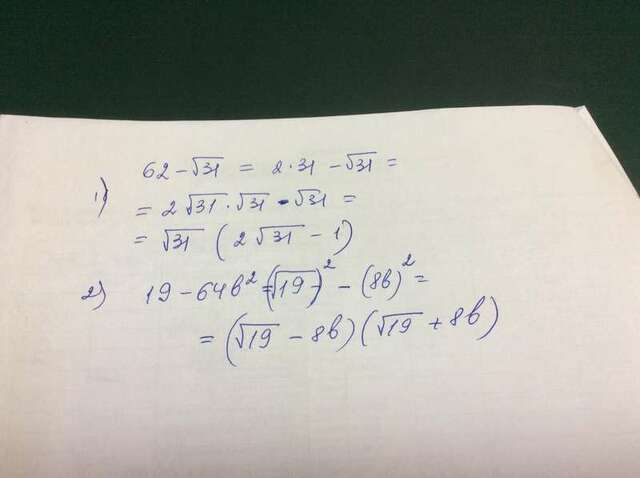 1) 62 - √31 = 2·31 - √31 =
= 2√31 · √31 - √31 =
= √31 (2√31 - 1)
2) 19 - 64b² = (√19)² - (8b)² =
= (√19 - 8b)(√19 + 8b)